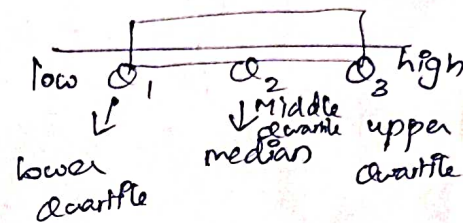 low Q1 Q2 Q3 high
lower Quartile
Middle Quartile
median
upper Quartile